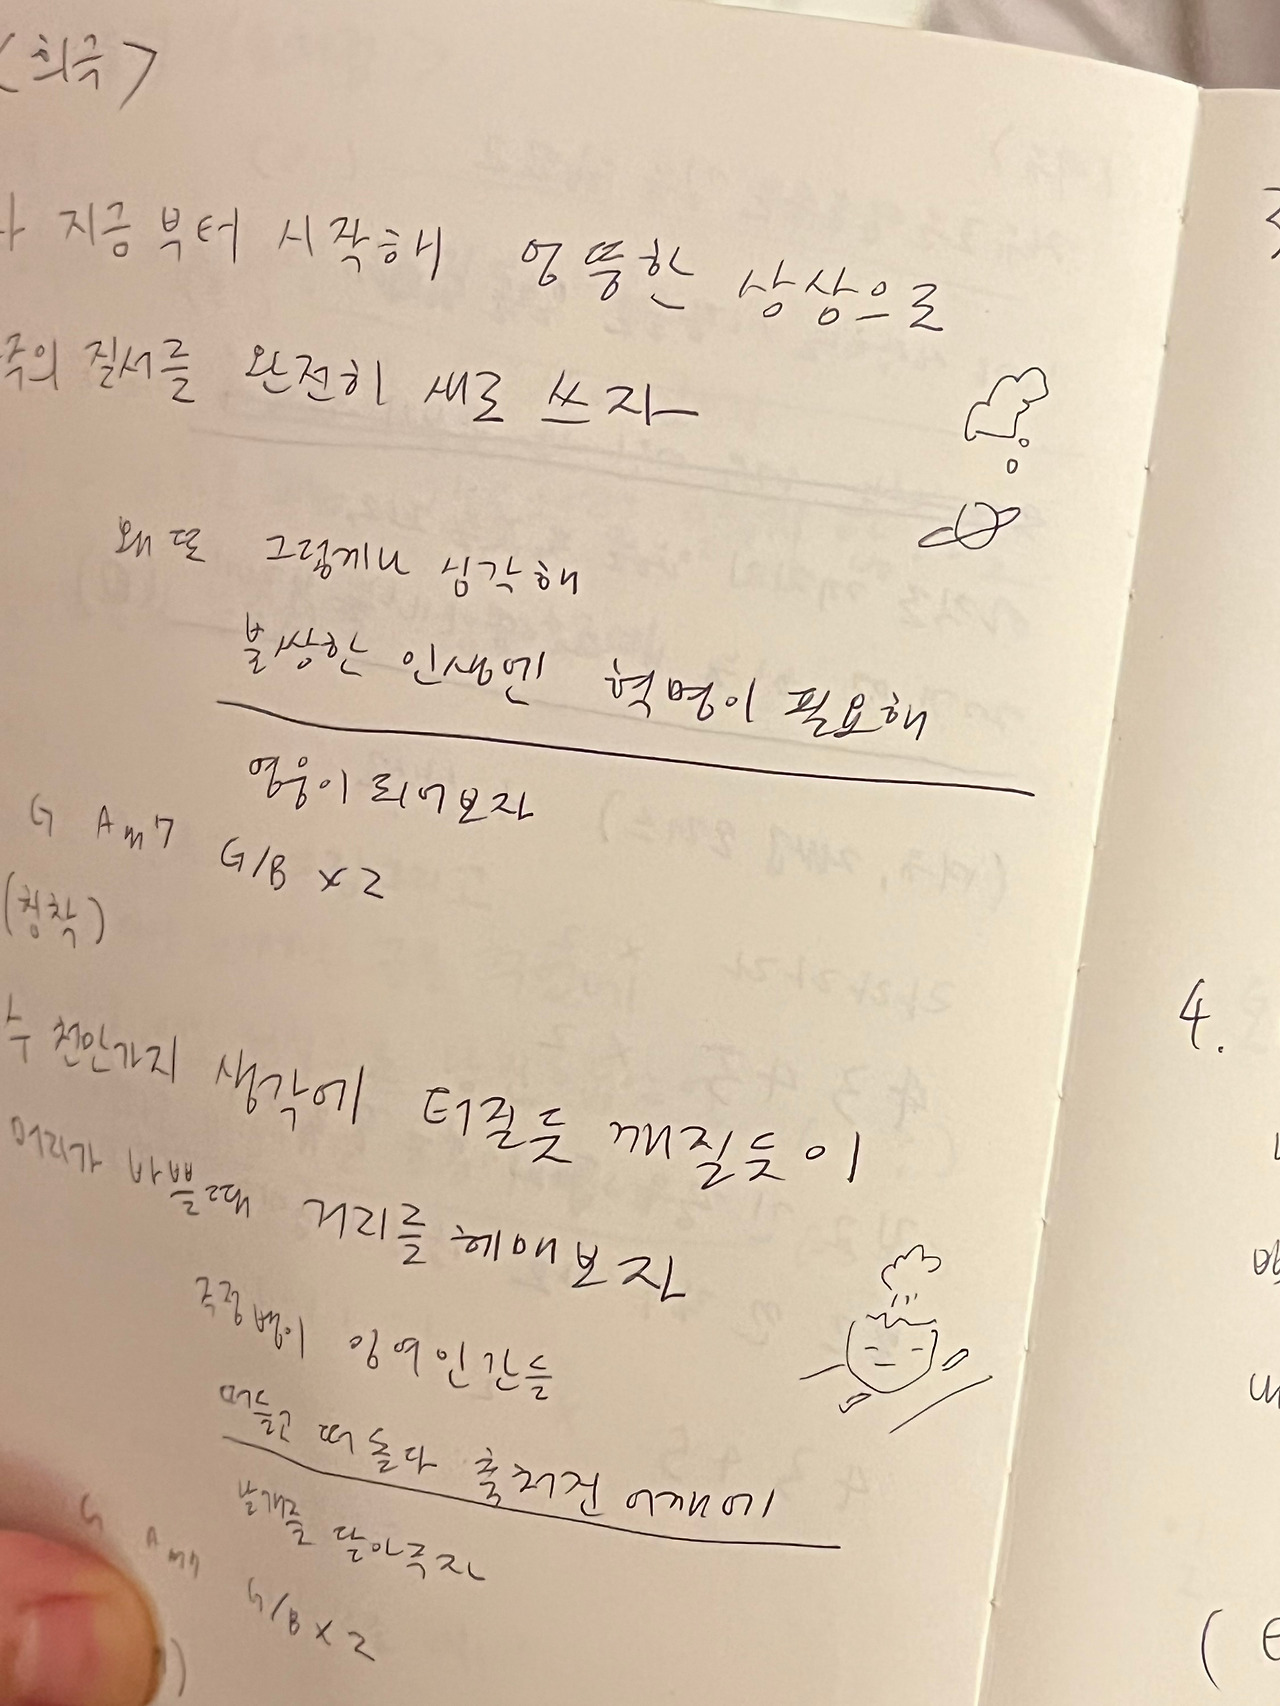 <희극>
지금부터 시작해 엉뚱한 상상으로
주의 질서를 완전히 새로 쓰자
왜 또 그렇게나 심각해
불쌍한 인생엔 혁명이 필요해
영웅이 되어보자
G Am7 G/B x2
(침착)
수 천만가지 생각에 터질듯 깨질듯이
머리가 바쁠때 거리를 헤매보자
걱정병이 잉여인간들
떠돌다 축 처진 어깨에
날개를 달아주자
G Am7 G/B x2
4.